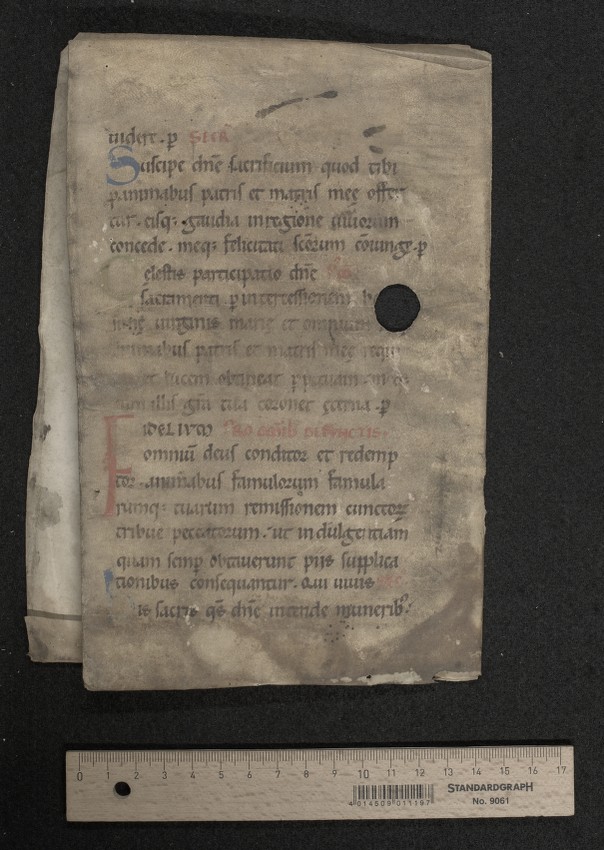 uidere. p SECR
Suscipe dñe sacrificium quod tibi
p animabus patris et matris meę offer
tur. eisq; gaudia in regione uiuorum
concede. meq; felicitati scōrum coniunge. p
elestis participatio dñe
sacramenti p intercessionem
uirginis marię et omnium
animabus patris et matris meę requi
et lucem obtineat ppetuam.
illis gr̄a tua coronet ęterna. p
IDELIUM PRO OMIB DEFUNCTIS.
omniū deus conditor et redemp
tor. animabus famulorum famula
rumq; tuarum remissionem cunctor
tribue peccatorum. ut indulgentiam
quam semp obtauerunt piis supplica
tionibus consequantur. Qui uiuis
is sacris q̄s dñe intende munerib;
0 1 2 3 4 5 6 7 8 9 10 11 12 13 14 15 16 17
STANDARDGRAPH
4 014509 011197
No. 9061